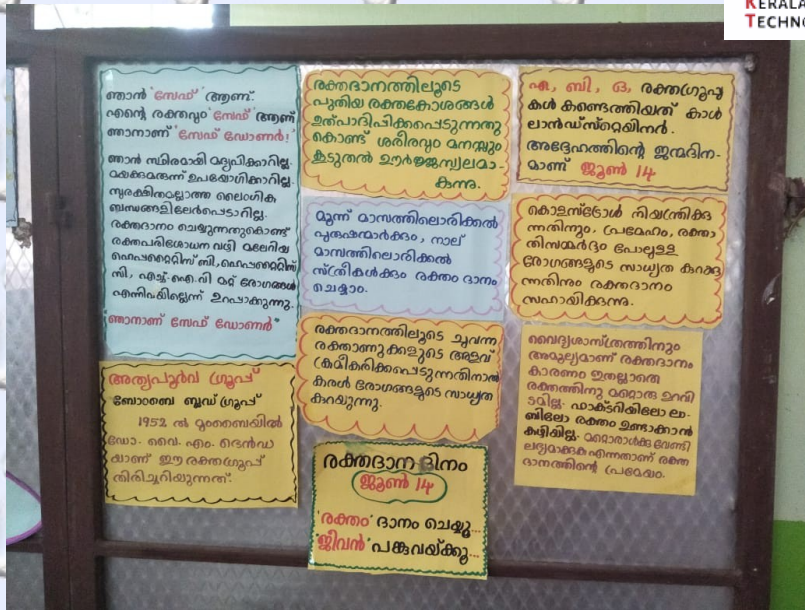 KERALA
TECHNO
ഞാൻ 'സേഫ്' ആണ്.
എന്റെ രക്തവും 'സേഫ്' ആണ്
ഞാനാണ് 'സേഫ് ഡോണർ!'
ഞാൻ സ്ഥിരമായി മദ്യപിക്കാറില്ല.
മയക്കുമരുന്ന് ഉപയോഗിക്കാറില്ല.
സുരക്ഷിതമല്ലാത്ത ലൈംഗിക
ബന്ധങ്ങളിലേർപ്പെടാറില്ല.
രക്തദാനം ചെയ്യുന്നതുകൊണ്ട്
രക്തപരിശോധന വഴി മലേറിയ
ഹെപ്പറ്റൈറ്റിസ് ബി, ഹെപ്പറ്റൈറ്റിസ്
സി, എച്ച്.ഐ.വി മറ്റ് രോഗങ്ങൾ
എന്നിവയില്ലെന്ന് ഉറപ്പാക്കുന്നു.
"ഞാനാണ് സേഫ് ഡോണർ"
അത്യപൂർവ ഗ്രൂപ്പ്
ബോംബെ ബ്ലഡ് ഗ്രൂപ്പ്
1952 ൽ മുംബൈയിൽ
ഡോ. വൈ. എം. ഭെൻഡ
യാണ് ഈ രക്തഗ്രൂപ്പ്
തിരിച്ചറിയുന്നത്.
രക്തദാനത്തിലൂടെ
പുതിയ രക്തകോശങ്ങൾ
ഉത്പാദിപ്പിക്കപ്പെടുന്നതു
കൊണ്ട് ശരീരവും മനസ്സും
കൂടുതൽ ഊർജ്ജസ്വലമാ-
കുന്നു.
മൂന്ന് മാസത്തിലൊരിക്കൽ
പുരുഷന്മാർക്കും, നാല്
മാസത്തിലൊരിക്കൽ
സ്ത്രീകൾക്കും രക്തം ദാനം
ചെയ്യാം.
രക്തദാനത്തിലൂടെ ചുവന്ന
രക്താണുക്കളുടെ അളവ്
ക്രമീകരിക്കപ്പെടുന്നതിനാൽ
കരൾ രോഗങ്ങളുടെ സാധ്യത
കുറയുന്നു.
രക്തദാന ദിനം
ജൂൺ 14
'രക്തം' ദാനം ചെയ്യൂ...
'ജീവൻ' പങ്കുവയ്ക്കൂ...
എ, ബി, ഒ, രക്തഗ്രൂപ്പു
കൾ കണ്ടെത്തിയത് കാൾ
ലാൻഡ്സ്റ്റെയിനർ.
അദ്ദേഹത്തിന്റെ ജന്മദിന-
മാണ് ജൂൺ 14
കൊളസ്ട്രോൾ നിയന്ത്രിക്കു
ന്നതിനും, പ്രമേഹം, രക്താ
തിസമ്മർദ്ദം പോലുള്ള
രോഗങ്ങളുടെ സാധ്യത കുറയ്ക്കു
ന്നതിനും രക്തദാനം
സഹായിക്കുന്നു.
വൈദ്യശാസ്ത്രത്തിനും
അമൂല്യമാണ് രക്തദാനം
കാരണം ഇതല്ലാതെ
രക്തത്തിനു മറ്റൊരു ഉറവി
ടമില്ല. ഫാക്ടറിയിലോ ലാ-
ബിലോ രക്തം ഉണ്ടാക്കാൻ
കഴിയില്ല. മറ്റൊരാൾക്കു വേണ്ടി
ലഭ്യമാക്കുക എന്നതാണ് രക്ത
ദാനത്തിന്റെ പ്രമേയം.